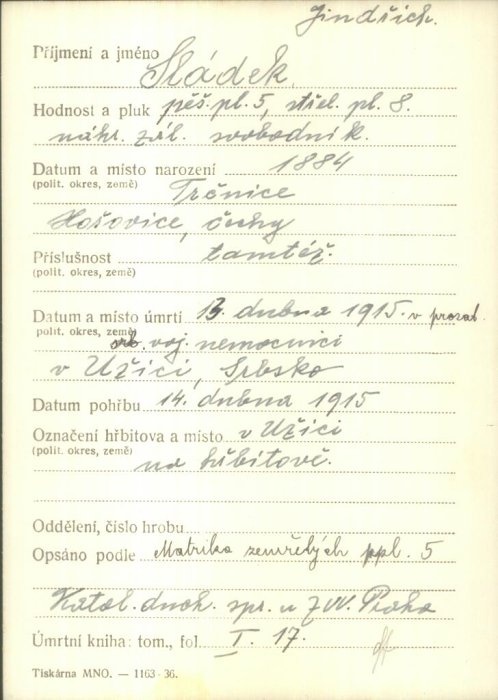 Jindřich.
Příjmení a jméno Sládek
Hodnost a pluk pěš. pl. 5, střel. pl. 8.
náhr. zál. svobodník.
Datum a místo narození 1884
(polit. okres, země) Trčnice
Hošovice, čechy
Příslušnost tamtéž.
(polit. okres, země)
Datum a místo úmrtí 13. dubna 1915. v prozat.
polit. okres, země) srb. voj. nemocnici
v Užici, Srbsko
Datum pohřbu 14. dubna 1915
Označení hřbitova a místo v Užici
(polit. okres, země) na hřbitově.
Oddělení, číslo hrobu
Opsáno podle Matrika zemřelých ppl. 5
Katol. duch. spr. u ZVV. Praha
Úmrtní kniha: tom., fol. I. 17.
Tiskárna MNO. — 1163-36.